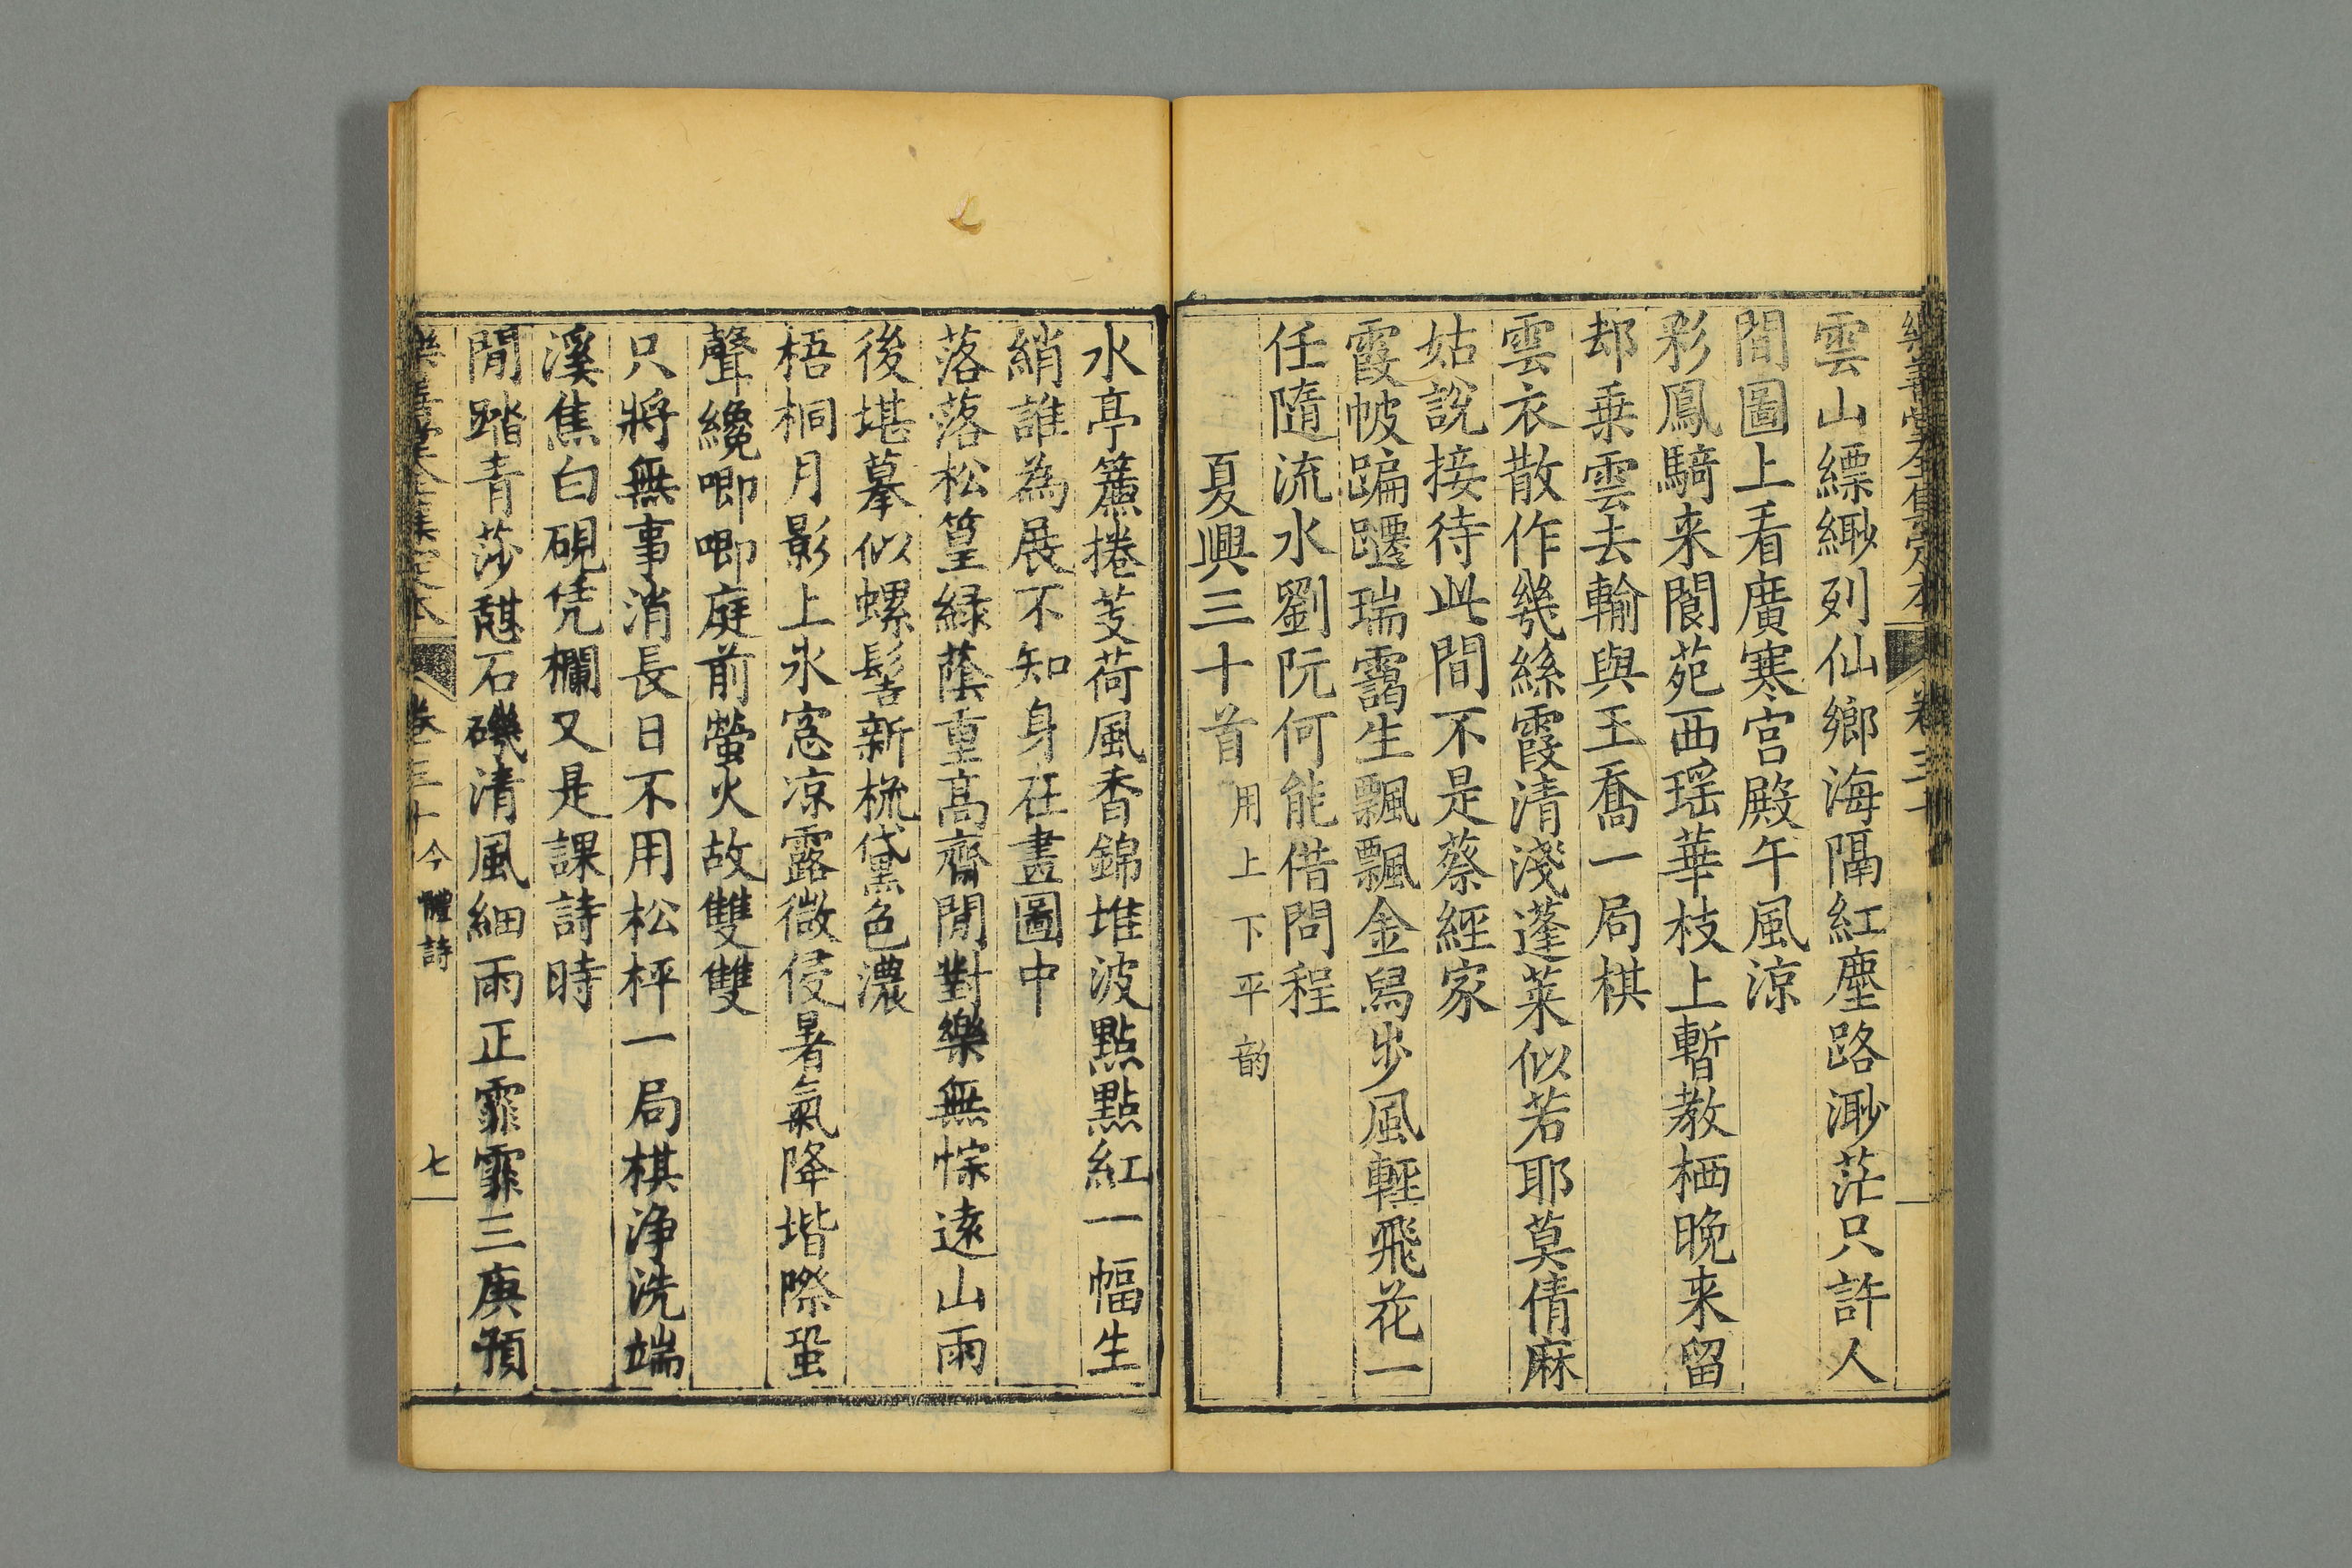 樂善堂全集定本
卷三十
雲山縹緲列仙鄉海隔紅塵路渺茫只許人
間圖上看廣寒宮殿午風涼
彩鳳騎来閬苑西瑶華枝上暫教栖晚来留
却乗雲去輸與王喬一局棋
雲衣散作幾絲霞清淺蓬莱似若耶莫倩麻
姑說接待此間不是蔡經家
霞帔蹁躚瑞靄生飄飄金舄步風輕飛花一
任隨流水劉阮何能借問程
夏興三十首用上下平韵
水亭簾捲芰荷風香錦堆波點點紅一幅生
綃誰為展不知身在畫圖中
落落松篁緑蔭重高齋閒對樂無悰遠山雨
後堪摹似螺髻新梳黛色濃
梧桐月影上氷窓凉露微侵暑氣降堦際蛩
聲纔唧唧庭前螢火故雙雙
只將無事消長日不用松枰一局棋浄洗端
溪焦白硯凭欄又是課詩時
閒踏青莎憇石磯清風細雨正霏霏三庚預
樂善堂全集定本
卷三十
今體詩
七